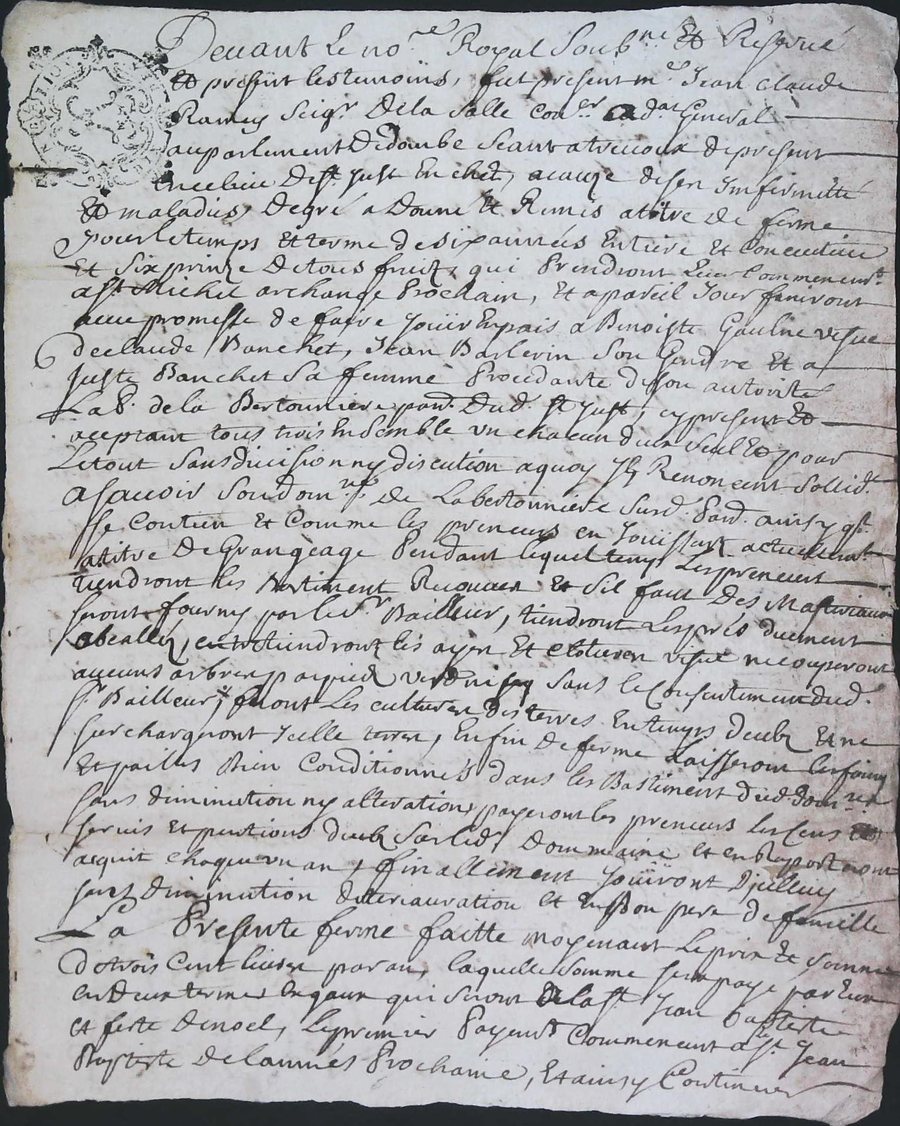 Devant Le no.re Royal Soub.ne Et Reservé
Et present les temoins, fut present m.e Jean Claude
Ramey Seig.r De la Salle Con.er ad.at General
au parlement De dombe Seant a trevoux de present
en ce lieu De s.t Just En chet, a cauze de ses Imfermité
Et maladies, De gré a Donné Et Remis a titre de ferme
pour Le temps Et terme de six années Entiere Et Concecutive
Et Six prinze De tous fruit, qui Prendront Leur Commencem.t
a s.t Michel archange Prochain, Et a pareil Jour finiront
avec promesse de faire Jouir En pais a Benoiste Gaulne vefue
de claude Banchet, Jean Barlerin Son Gendre Et a
Juste Banchet Sa femme Procedante de son autorité
Lab. de la Bertonniere par. Dud. s.t Just, cy present Et
aceptant tous trois Ensemble un chacun d'eux seul Et pour
Le tout Sans division ny discution a quoy Ils Renoncent Sollid.
a Scavoir Son dom.ne de La bertonniere Sur d. Par. ainsy q.l
se Contien Et Comme les preneurs en Jouissent actuellem.t
a titre De Grangeage Pendant lequel temps Les preneurs
tiendront les Batiment Recouver Et Sil faut Des Materiaux
seront fourny par le s.r Bailleur, tiendront Les prés duement
abealler, entretiendront les ayes Et clotures vifue ne couperont
aucuns arbres par pied verd ni sec Sans le Consentement dud.
s.r Bailleur, feront Les cultures des terres En temps deub Et ne
surchargeront Icelle terres, En fin de ferme Laisseront les foins
Et pailles Bien Conditionnés dans les Bastiment dud. dom.ne
sans diminution ny alteration, payeront les preneurs les Cens
servis Et pentions deub Sur led. Dommaine et en Raporteront
acquit chaque un an, finallement Jouiront D'icelluy
sans diminution deteriauration Et En Bon pere de famille
La Presente ferme faitte moyenant Le prix Et Somme
De trois Cent livres par an, laquelle Somme sera paye par Eux
en deux termes Egaux qui seront De la s.t Jean Baptiste
et feste De noel, Le premier Payem.t Commencent a la s.t Jean
Baptiste De Lannés Prochaine, Et ainsy Continuer